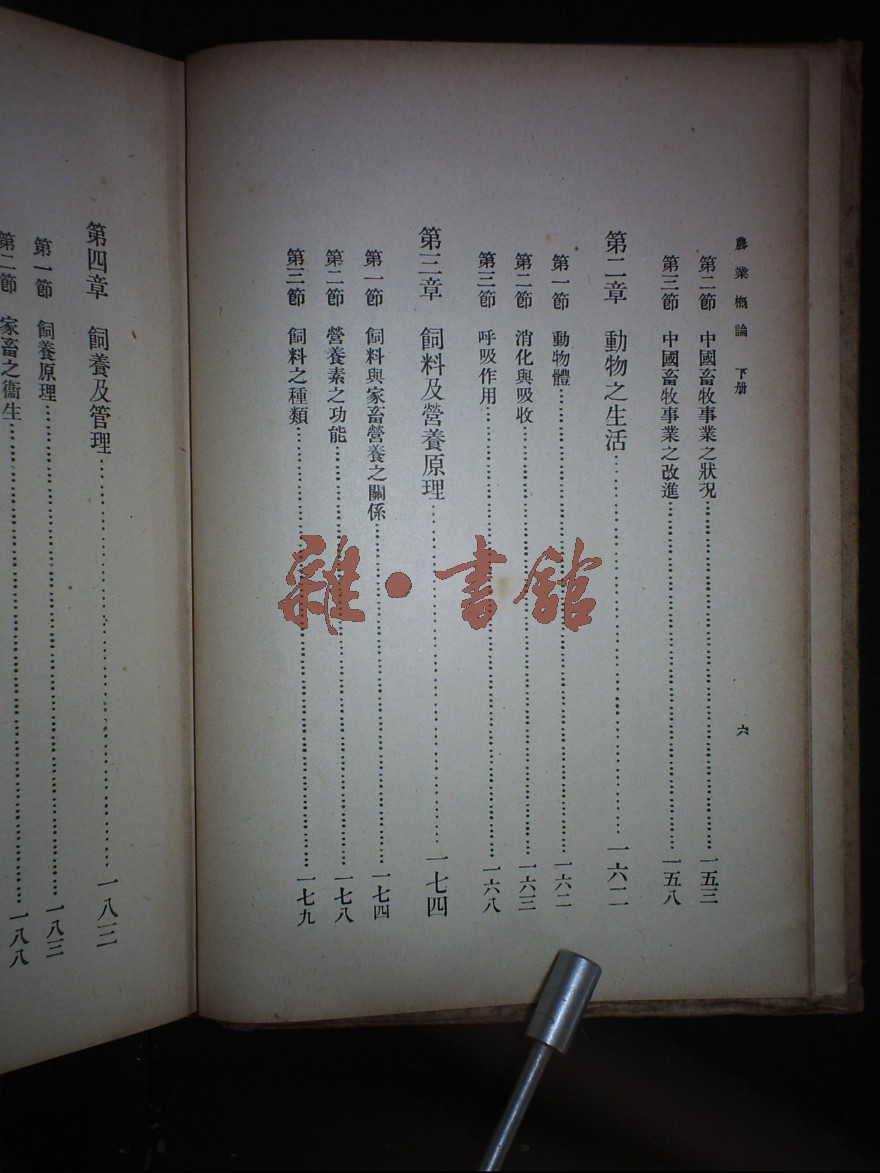 農業概論 下册
六
第二節 中國畜牧事業之狀況……一五三
第三節 中國畜牧事業之改進……一五八
第二章 動物之生活……一六二
第一節 動物體……一六二
第二節 消化與吸收……一六三
第三節 呼吸作用……一六八
第三章 飼料及營養原理……一七四
第一節 飼料與家畜營養之關係……一七四
第二節 營養素之功能……一七八
第三節 飼料之種類……一七九
第四章 飼養及管理……一八三
第一節 飼養原理……一八三
第二節 家畜之衞生……一八八
雜·書館